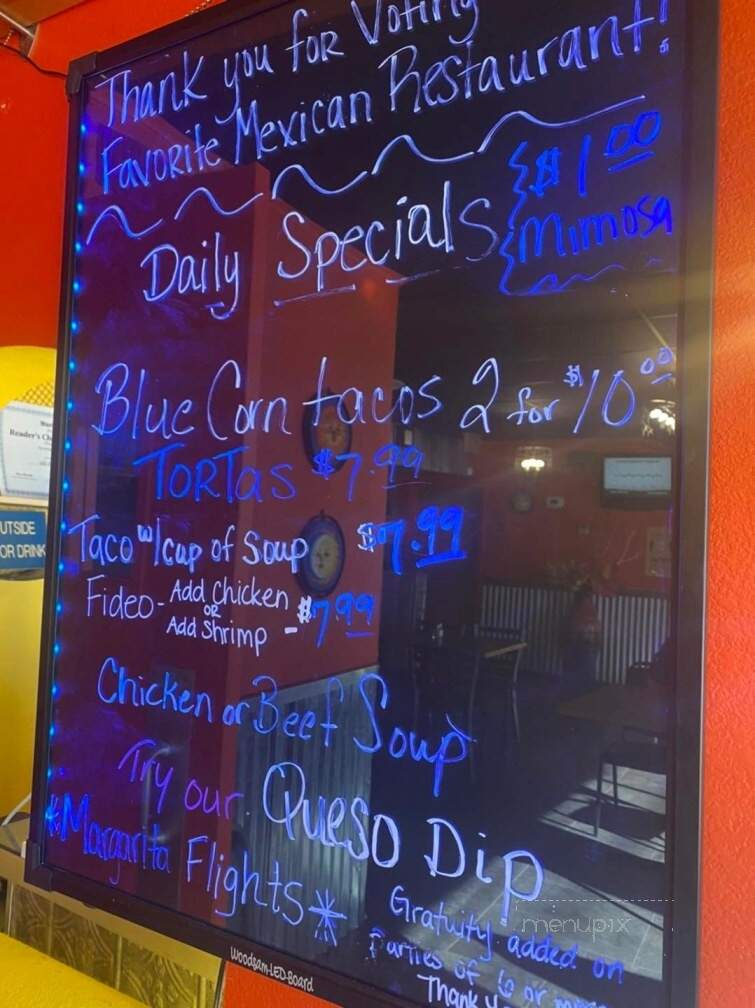 Thank you for Voting
Favorite Mexican Restaurant!
Daily Specials
$1.00
Mimosa
Blue Corn tacos 2 for $10.00
TORTAS $7.99
Taco w/cup of Soup $7.99
Fideo - Add Chicken
or
Add Shrimp - $7.99
Chicken or Beef Soup
Try our Queso Dip
*Margarita Flights*
Gratuity added on
Parties of 6 or
Thank
Woodsam-LED-Board
Reader's
UTSIDE
OR DRINK
menupix